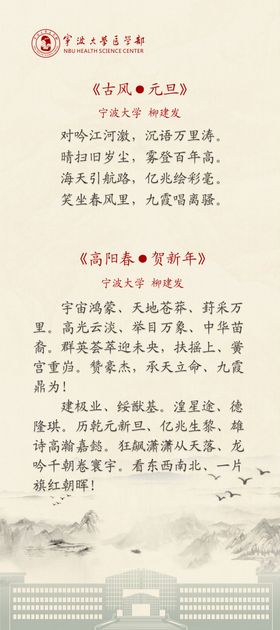 宁波大学医学部
NBU HEALTH SCIENCE CENTER
《古风●元旦》
宁波大学 柳建发
对吟江河激，沉语万里涛。
晴扫旧岁尘，雾登百年高。
海天引航路，亿兆绘彩毫。
笑坐春风里，九霞唱离骚。
《高阳春●贺新年》
宁波大学 柳建发
宇宙鸿蒙、天地苍莽、葑采万
里。高光云淡、举目万象、中华苗
裔。群英荟萃迎未央，扶摇上、黉
宫重峃。赞豪杰，承天立命、九霞
鼎为！
建极业、绥猷基。湟星途、德
隆琪。历乾元新旦、亿兆生黎、雄
诗高瀚嘉懿。狂飙潇潇从天落、龙
吟千朝卷寰宇。看东西南北、一片
旗红朝晖！